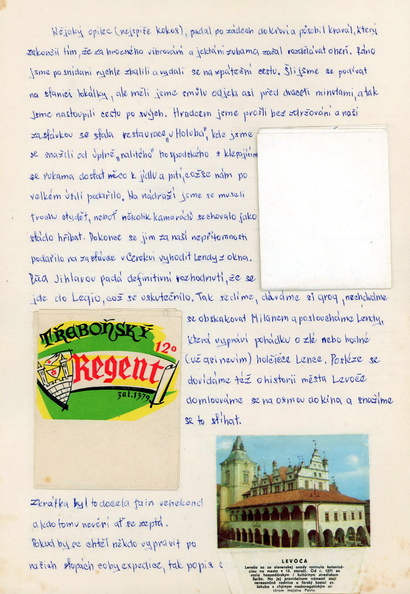 Nějaký opilec (nejspíše Kokos), padal po zádech do křoví a působil kravál, který
zakončil tím, že za hrozného vibrování a jektání zubama začal rozdělávat oheň. Ráno
jsme po snídani rychle zbalili a vydali se na zpáteční cestu. Šli jsme se podívat
na stanici lokálky, ale měli jsme smůlu odjela asi před dvaceti minutami, a tak
jsme nastoupili cestu po svých. Hradcem jsme prošli bez zdržování a naší
zastávkou se stala restaurace „u Holuba", kde jsme
se snažili od úplně „nalitého" hospodského s klepajícíma
se rukama dostat něco k jídlu a pití, což se nám po
velkém úsilí podařilo. Na nádraží jsme se museli
trochu stydět, neboť několik kamarádů se chovalo jako
stádo hříbat. Dokonce se jim za naší nepřítomnosti
podařilo na zastávce v Cerekvi vyhodit Lendy z okna.
Před Jihlavou padá definitivní rozhodnutí, že se
jde do Legio, což se uskutečnilo. Tak sedíme, dáváme si grog, necháváme
se obskakovat Milanem a posloucháme Lendy,
která vypráví pohádku o zlé nebo hodné
(už asi nevím) holčičce Lence. Posléze se
dovídáme též o historii města Levoče
domlouváme se na osmou do kina a snažíme
se to stíhat.
TŘEBOŇSKÝ
12°
Regent
zal. 1379
Zkrátka byl to docela fajn vehekend
a kdo tomu nevěří ať se zeptá.
Pokud by se chtěl někdo vypravit po
našich stopách coby expedice, tak popis
LEVOČA
Levoča sa zo slovenskej osady